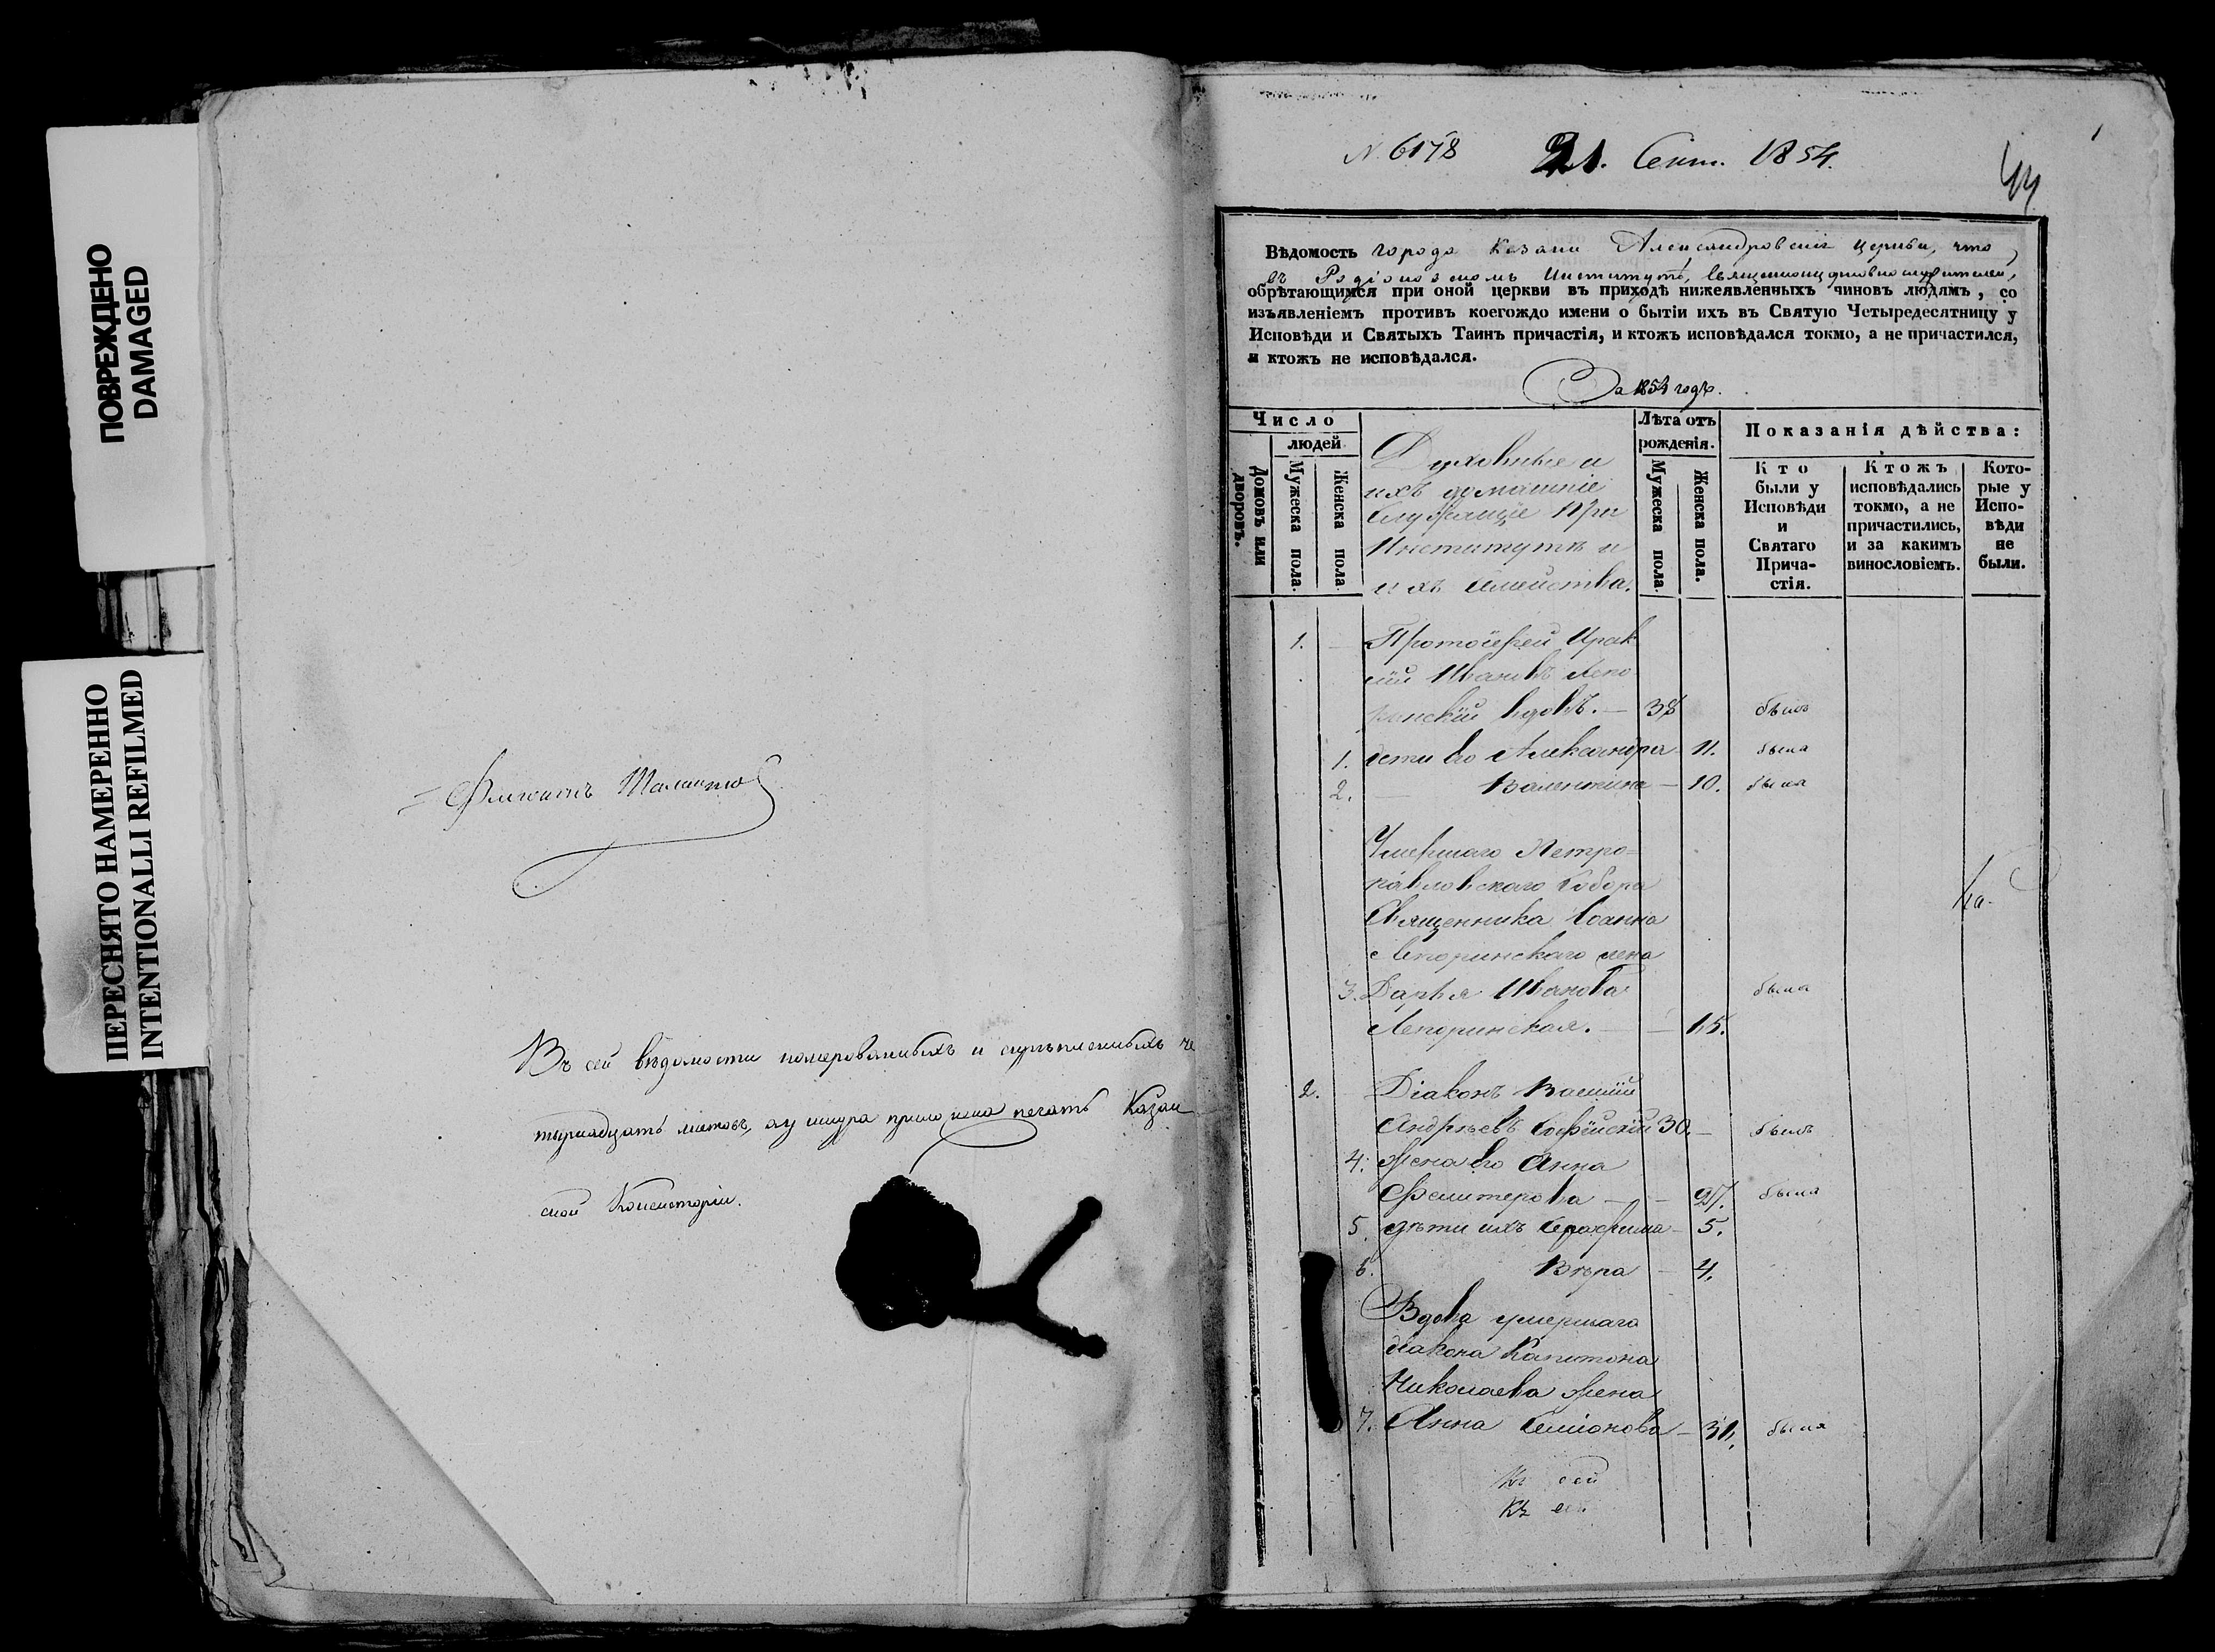 ПОВРЕЖДЕНО
DAMAGED
ПЕРЕСНЯТО НАМЕРЕННО
INTENTIONALLI REFILMED
Въ сей вѣдомости номерованныхъ и скрѣпленныхъ че
тырнадцать листовъ, а у шнура приложена печать Казан
ской Консисторіи.
N. 6178 21. Сент. 1854.
44
1
Вѣдомость города Казани Александровскія церкви, что
въ Родіоновскомъ Институтѣ, священноцерковнослужителей,
обрѣтающимся при оной церкви въ приходѣ нижеявленныхъ чиновъ людямъ, со
изъявленіемъ противъ коегождо имени о бытіи ихъ въ Святую Четыредесятницу у
Исповѣди и Святыхъ Таинъ причастія, и ктожъ исповѣдался токмо, а не причастился,
и ктожъ не исповѣдался.
За 1854 годъ.
Число
людей
Домовъ или дворовъ.
Мужеска пола.
Женска пола.
Духовные и
ихъ домашніе
Служащіе при
Институтѣ и
ихъ семейства.
Лѣта отъ
рожденія.
Мужеска пола.
Женска пола.
Показанія дѣйства:
Кто
были у
Исповѣди
и
Святаго
Прича-
стія.
Ктожъ
исповѣдались
токмо, а не
причастились,
и за какимъ
винословіемъ.
Кото-
рые у
Испо-
вѣди
не
были.
1. Протоіерей Ирак
лій Ивановъ Лепо
ринскій вдовъ. — 38 былъ
1. дети его Александра 11. была
2. — Валентина — 10. была
Умершаго Петро=
павловскаго Собора
Священника Іоанна
Лепоринскаго жена
3. Дарья Иванова была
Лепоринская. — —
2. Діаконъ Василій
Андреевъ Софійскій 30. — былъ
4. Жена его Анна
— — 27. была
5. дѣти ихъ Серафима — 5.
6. Вѣра — 4.
Вдова умершаго
діакона Капитона
Николаева жена
7. Анна Семіонова — 31. была
Къ сей
Къ сей